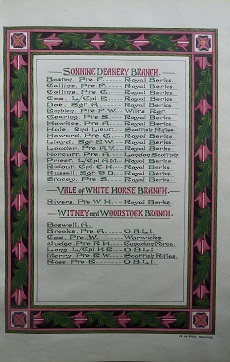 SONNING DEANERY BRANCH.
Pte F. Royal Berks.
Collins, Pte F. Royal Berks.
Collins, Pte G. Royal Berks.
Cox, L/Cpl E. Royal Berks.
Dee, Sgr A. Royal Berks.
Pte F.W. Wilts Rgr
Gearing, Pte S. Royal Berks.
Hawkes, Pte A. Royal Berks.
Hale, 2nd Lieut. Scottish Rifles.
Howard, Pte C. Royal Berks.
Lloyd, Sgr B.W. Royal Berks.
Loader, Pte A.V. Royal Berks.
Pte A. London Scottish
L/Cpl A.D. Royal Berks.
Ridout, Cpl C.H. Royal Berks.
Russell, Sgr G.D. Royal Berks.
Pte S. Royal Berks.
VALE OF WHITE HORSE BRANCH.
Rivers, Pte W.H. Royal Berks.
WITNEY and WOODSTOCK BRANCH.
Boswell, A.
Brooks, Pte A. O.B.L.I.
Cox, Pte W. Warwicks.
Judge, Pte R.H. Canadian Force.
Long, L/Cpl H.E. O.B.L.I.
Merry, Pte E.W. Scottish Rifles.
Rose, Pte E. O.B.L.I.